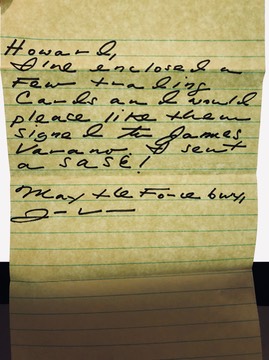 Howard,
I've enclosed a
few trading
Cards and would
please like them
signed to James
Varano. I sent
a SASE!
May the Force buy,
J-V-